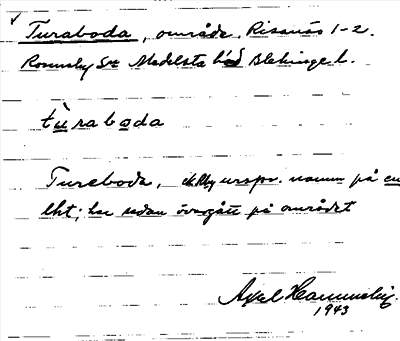 Turaboda, område. Risanäs 1-2.
Ronneby Sn Medelsta hd Blekinge l.
tùraboda
Tureboda, urspr. namn på en
lht; har sedan övergått på området
Axel
1943